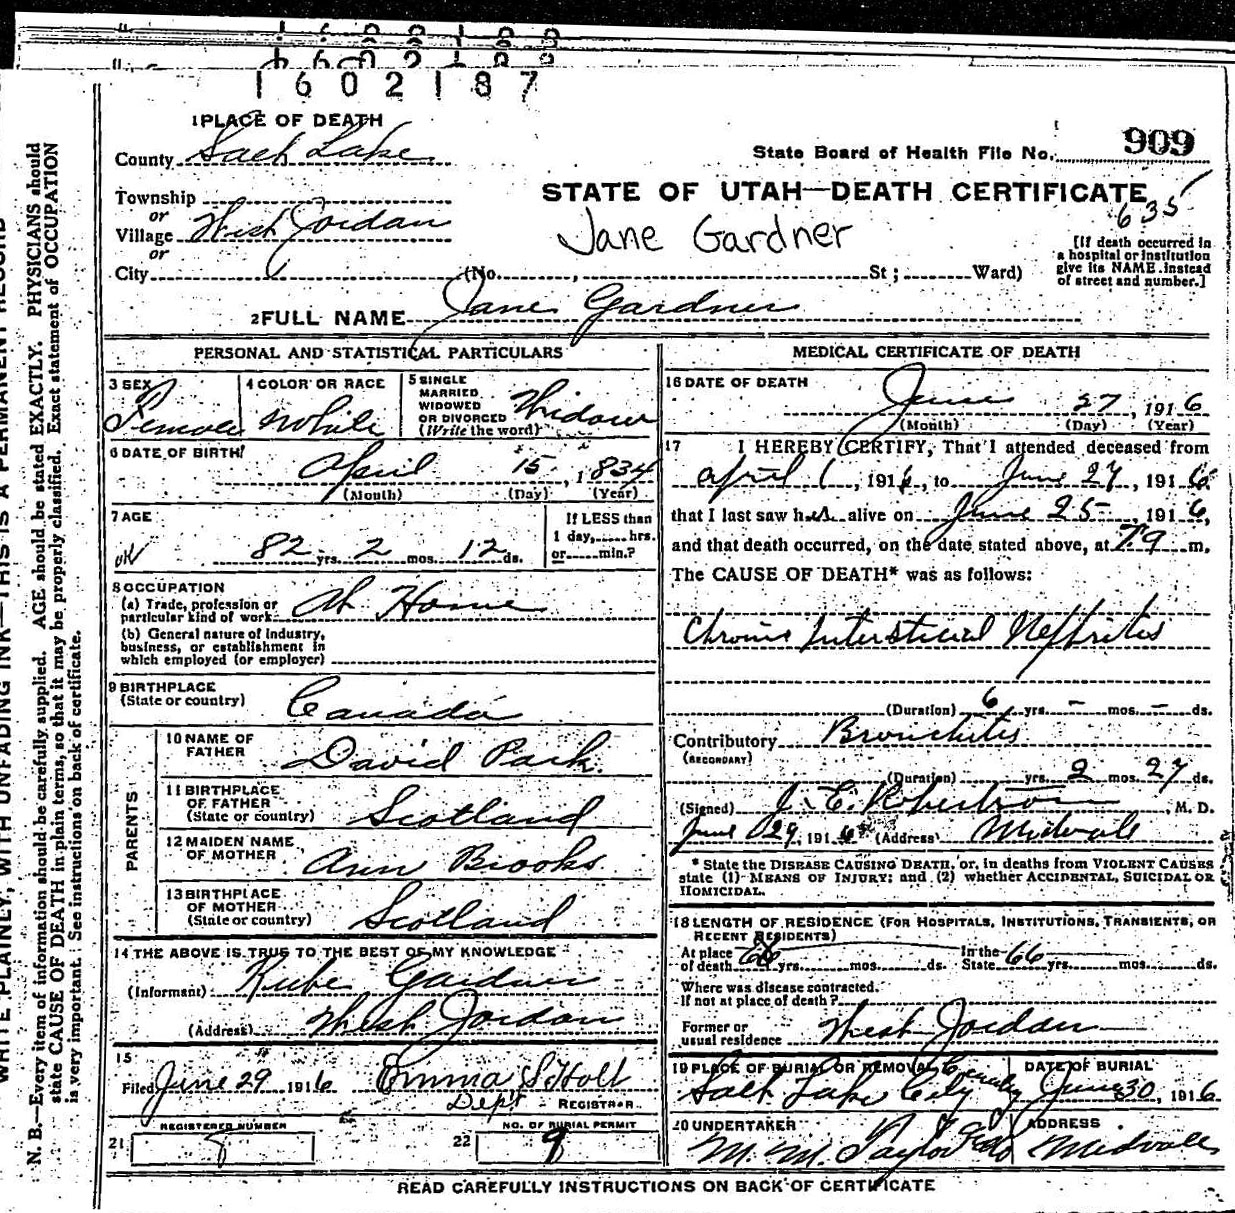 1602187
1 PLACE OF DEATH
County Salt Lake
State Board of Health File No. 909
Township
or
Village West Jordan
or
City (No. , St ; Ward)
STATE OF UTAH—DEATH CERTIFICATE
635
Jane Gardner
[If death occurred in
a hospital or institution
give its NAME instead
of street and number.]
2 FULL NAME Jane Gardner
PERSONAL AND STATISTICAL PARTICULARS
3 SEX Female
4 COLOR OR RACE White
5 SINGLE
MARRIED
WIDOWED
OR DIVORCED
(Write the word) Widow
6 DATE OF BIRTH
April 15, 1834
(Month) (Day) (Year)
7 AGE
82 yrs. 2 mos. 12 ds.
If LESS than
1 day, hrs.
or min.?
8 OCCUPATION
(a) Trade, profession or
particular kind of work At Home
(b) General nature of industry,
business, or establishment in
which employed (or employer)
9 BIRTHPLACE
(State or country) Canada
PARENTS
10 NAME OF
FATHER David Park.
11 BIRTHPLACE
OF FATHER
(State or country) Scotland
12 MAIDEN NAME
OF MOTHER Ann Brooks
13 BIRTHPLACE
OF MOTHER
(State or country) Scotland
14 THE ABOVE IS TRUE TO THE BEST OF MY KNOWLEDGE
(Informant) Gardner
(Address) West Jordan
15
Filed June 29 1916 Emma S Holt
Dep't REGISTRAR.
21 REGISTERED NUMBER
22 NO. OF BURIAL PERMIT
9
MEDICAL CERTIFICATE OF DEATH
16 DATE OF DEATH
June 27, 1916
(Month) (Day) (Year)
17 I HEREBY CERTIFY, That I attended deceased from
April 1, 1916, to June 27, 1916
that I last saw her alive on June 25, 1916,
and that death occurred, on the date stated above, at m.
The CAUSE OF DEATH* was as follows:
Chronic Interstitial Nephritis
(Duration) 6 yrs. - mos. - ds.
Contributory Bronchitis
(SECONDARY)
(Duration) yrs. 2 mos. 27 ds.
(Signed) J. E. Robertson, M. D.
June 29, 1916 (Address) Midvale
* State the DISEASE CAUSING DEATH, or, in deaths from VIOLENT CAUSES
state (1) MEANS OF INJURY; and (2) whether ACCIDENTAL, SUICIDAL OR
HOMICIDAL.
18 LENGTH OF RESIDENCE (FOR HOSPITALS, INSTITUTIONS, TRANSIENTS, OR
RECENT RESIDENTS)
At place
of death yrs. mos. ds. In the
State 66 yrs. mos. ds.
Where was disease contracted.
If not at place of death?
Former or
usual residence West Jordan
19 PLACE OF BURIAL OR REMOVAL
Salt Lake City
DATE OF BURIAL
June 30, 1916
20 UNDERTAKER
M. M. Taylor
ADDRESS
Midvale
READ CAREFULLY INSTRUCTIONS ON BACK OF CERTIFICATE
WRITE PLAINLY, WITH UNFADING INK—THIS IS A PERMANENT RECORD
N. B.—Every item of information should be carefully supplied. AGE should be stated EXACTLY. PHYSICIANS should
state CAUSE OF DEATH in plain terms, so that it may be properly classified. Exact statement of OCCUPATION
is very important. See instructions on back of certificate.